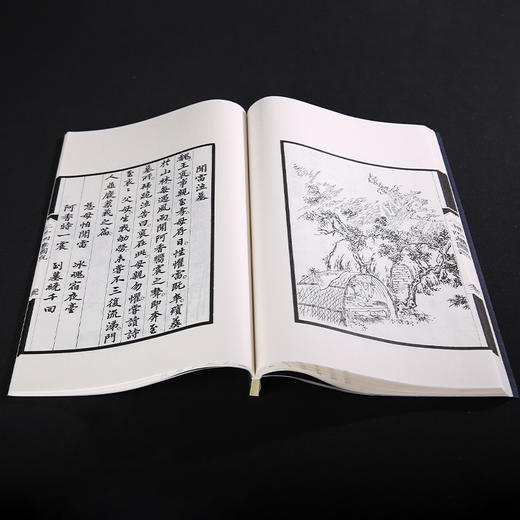 聞雷泣墓
魏王裒事親至孝母存日性懼雷既卒殯葬
於山林每遇風雨聞阿香響震之聲即奔至
墓所拜跪泣告曰裒在此母親勿懼嘗讀詩
至哀〻父母生我劬勞未嘗不三復流涕門
人廢蓼莪之篇
慈母怕聞雷 冰魂宿夜臺
阿香時一震 到墓繞千回
二十四孝圖說